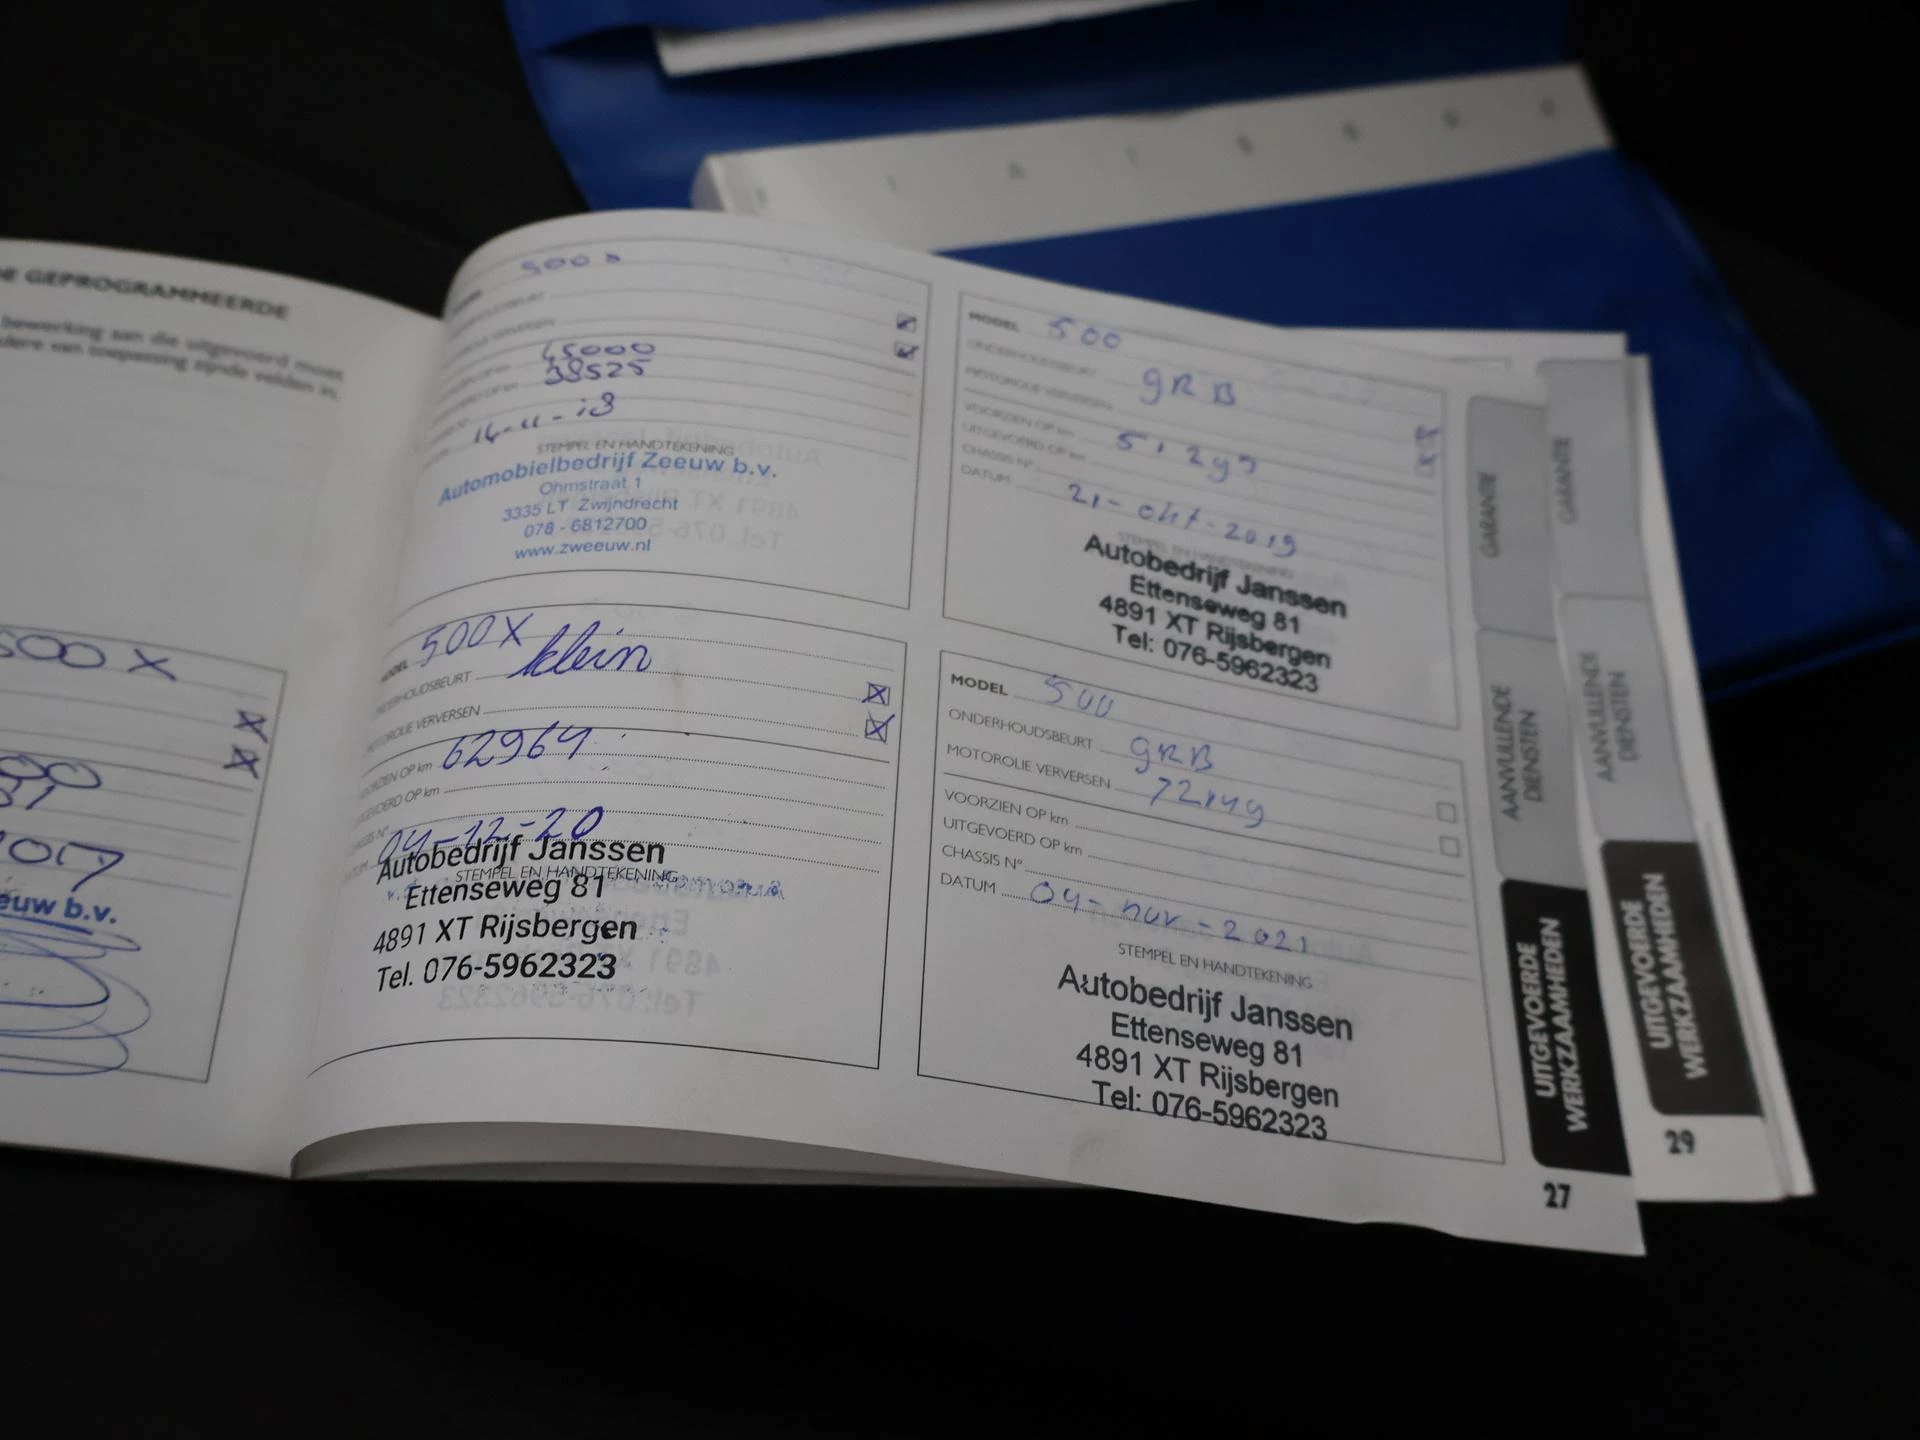 DE GEPROGRAMMEERDE
bewerking aan die uitgevoerd moet
van toepassing zijnde velden in.
500 X
2017
euw b.v.
45000
38525
STEMPEL EN HANDTEKENING
Automobielbedrijf Zeeuw b.v.
Ohmstraat 1
3335 LT Zwijndrecht
078 - 6812700
www.zweeuw.nl
MODEL 500X
ONDERHOUDSBEURT klein
MOTOROLIE VERVERSEN
VOORZIEN OP km 62964
UITGEVOERD OP km
CHASSIS N°
DATUM 04-12-20
STEMPEL EN HANDTEKENING
Autobedrijf Janssen
Ettenseweg 81
4891 XT Rijsbergen
Tel. 076-5962323
MODEL 500
ONDERHOUDSBEURT gRB
MOTOROLIE VERVERSEN
VOORZIEN OP km
UITGEVOERD OP km
CHASSIS N°
DATUM 21-okt-2019
STEMPEL EN HANDTEKENING
Autobedrijf Janssen
Ettenseweg 81
4891 XT Rijsbergen
Tel: 076-5962323
MODEL 500
ONDERHOUDSBEURT gRB
MOTOROLIE VERVERSEN
VOORZIEN OP km
UITGEVOERD OP km
CHASSIS N°
DATUM 04-nov-2021
STEMPEL EN HANDTEKENING
Autobedrijf Janssen
Ettenseweg 81
4891 XT Rijsbergen
Tel: 076-5962323
GARANTIE
AANVULLENDE
DIENSTEN
UITGEVOERDE
WERKZAAMHEDEN
27
GARANTIE
AANVULLENDE
DIENSTEN
UITGEVOERDE
WERKZAAMHEDEN
29